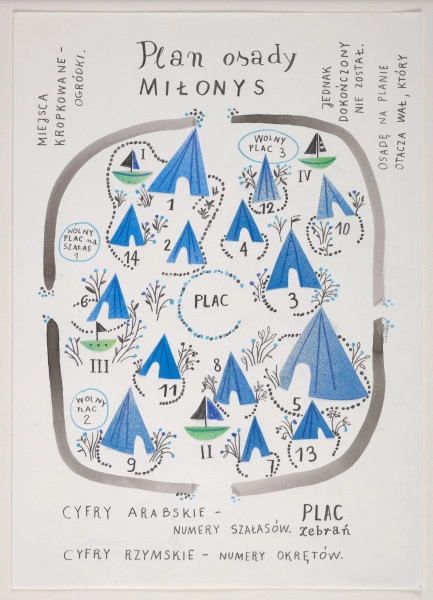 Plan osady
MIŁONYS
MIEJSCA
KROPKOWANE –
OGRÓDKI.
OSADĘ NA PLANIE
OTACZA WAŁ, KTÓRY
JEDNAK
DOKOŃCZONY
NIE ZOSTAŁ.
WOLNY
PLAC 3
I
IV
1
12
10
WOLNY
PLAC na
SZAŁAS
1
14
2
4
6
PLAC
3
III
11
8
5
WOLNY
PLAC
2
9
II
7
13
CYFRY ARABSKIE –
NUMERY SZAŁASÓW.
PLAC
zebrań
CYFRY RZYMSKIE – NUMERY OKRĘTÓW.